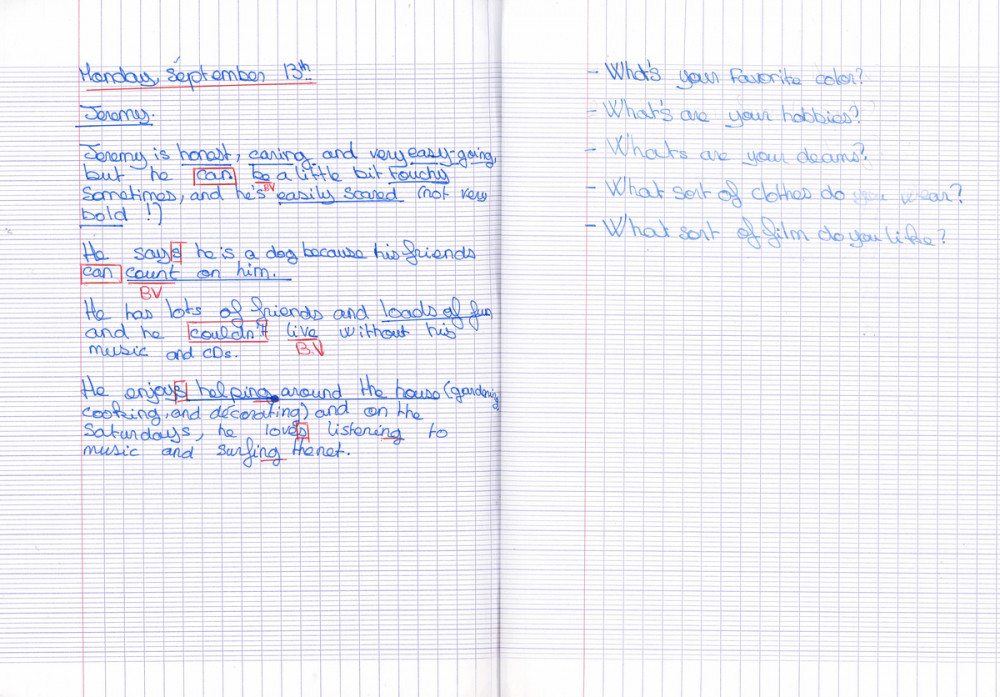 Monday, September 13th
Jeremy.
Jeremy is honest, caring and very easy-going,
but he can be a little bit touchy
BV
sometimes, and he's easily scared (not very
bold !)
He says he is a dog because his friends
can count on him.
BV
He has lots of friends and loads of fun
and he couldn't live without his
music and CDs.
B.V
He enjoys helping around the house (gardening,
cooking, and decorating) and on the
Saturdays, he loves listening to
music and surfing the net.
- What's your favorite color?
- What's are your hobbies?
- What's are your deams?
- What sort of clothes do you wear?
- What sort of film do you like?